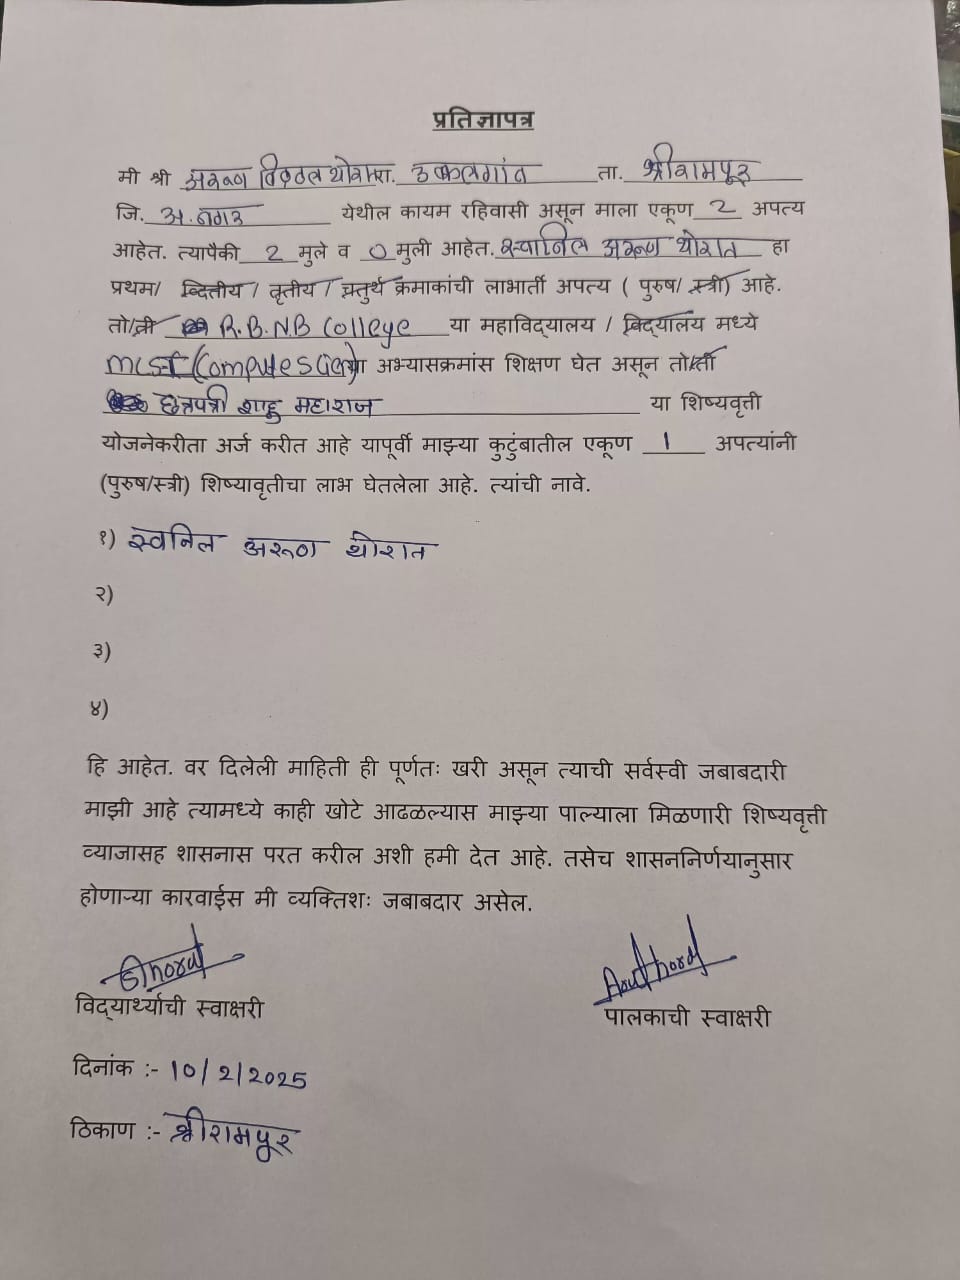 प्रतिज्ञापत्र
मी श्री अरुण विठ्ठल थोरात रा. उक्कलगांव ता. श्रीरामपूर
जि. अ.नगर येथील कायम रहिवासी असून माला एकूण 2 अपत्य
आहेत. त्यापैकी 2 मुले व 0 मुली आहेत. स्वप्निल अरुण थोरात हा
प्रथम/ व्दितीय / तृतीय / चतुर्थ क्रमाकांची लाभार्ती अपत्य ( पुरुष/ स्त्री) आहे.
तो/ती R.B.N.B College या महाविद्यालय / विद्यालय मध्ये
MCS-I (Computer Science) या अभ्यासक्रमांस शिक्षण घेत असून तो/ती
छत्रपती शाहु महाराज या शिष्यवृत्ती
योजनेकरीता अर्ज करीत आहे यापूर्वी माझ्या कुटुंबातील एकूण 1 अपत्यांनी
(पुरुष/स्त्री) शिष्यावृतीचा लाभ घेतलेला आहे. त्यांची नावे.
१) स्वनिल अरुण थोरात
२)
३)
४)
हि आहेत. वर दिलेली माहिती ही पूर्णतः खरी असून त्याची सर्वस्वी जबाबदारी
माझी आहे त्यामध्ये काही खोटे आढळल्यास माझ्या पाल्याला मिळणारी शिष्यवृत्ती
व्याजासह शासनास परत करील अशी हमी देत आहे. तसेच शासननिर्णयानुसार
होणाऱ्या कारवाईस मी व्यक्तिशः जबाबदार असेल.
SThorat
विद्यार्थ्याची स्वाक्षरी
पालकाची स्वाक्षरी
दिनांक :- 10/2/2025
ठिकाण :- श्रीरामपूर